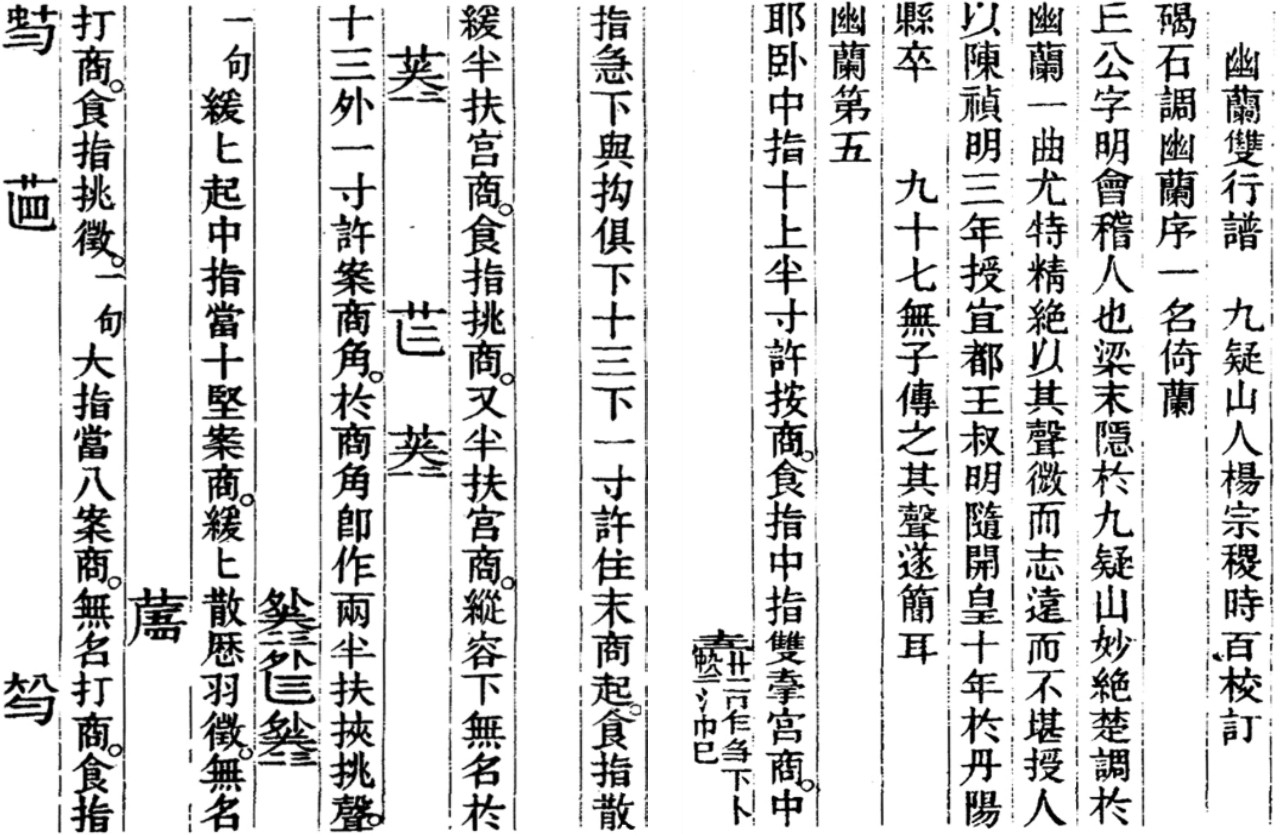 幽蘭雙行譜　九疑山人楊宗稷時百校訂
碣石調幽蘭序一名倚蘭
丘公字明會稽人也梁末隱於九疑山妙絶楚調於
幽蘭一曲尤特精絶以其聲微而志遠而不堪授人
以陳禎明三年授宜都王叔明隨開皇十年於丹陽
縣卒　九十七無子傳之其聲遂簡耳
幽蘭第五
耶卧中指十上半寸許按商。食指中指雙牽宮商。中
指急下與拘俱下十三下一寸許住末商起。食指散
緩半扶宮商。食指挑商。又半扶宮商。縱容下無名於
十三外一寸許案商角。於商角卽作兩半扶挾挑聲。
一句　緩上起中指當十堅案商。緩上散歷羽徵。無名
打商。食指挑徵。一句　大指當八案商。無名打商。食指